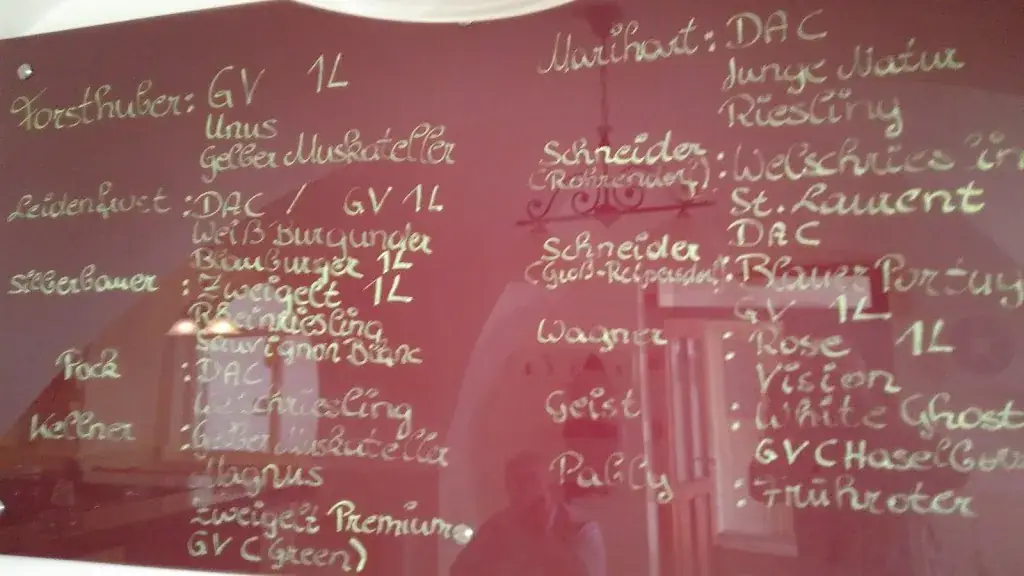 Forsthuber: GV 1L
Unus
Gelber Muskateller
Leidenfrost : DAC / GV 1L
Weißburgunder
Blauburger 1L
Silberbauer : Zweigelt 1L
Rheinriesling
Sauvignon Blanc
Pock : DAC
Welschriesling
Wellner : Gelber Muskateller
Magnus
Zweigelt Premium
GV (Green)
Marihart : DAC
Junge Natur
Riesling
Schneider : Welschriesling
(Rohrendorf)
St. Laurent
DAC
Schneider
(Groß-Reipersdorf) : Blauer Portug
GV 1L
Wagner : Rose 1L
Vision
Geist : White Ghost
GV (Haselb
Pably : Frühroter